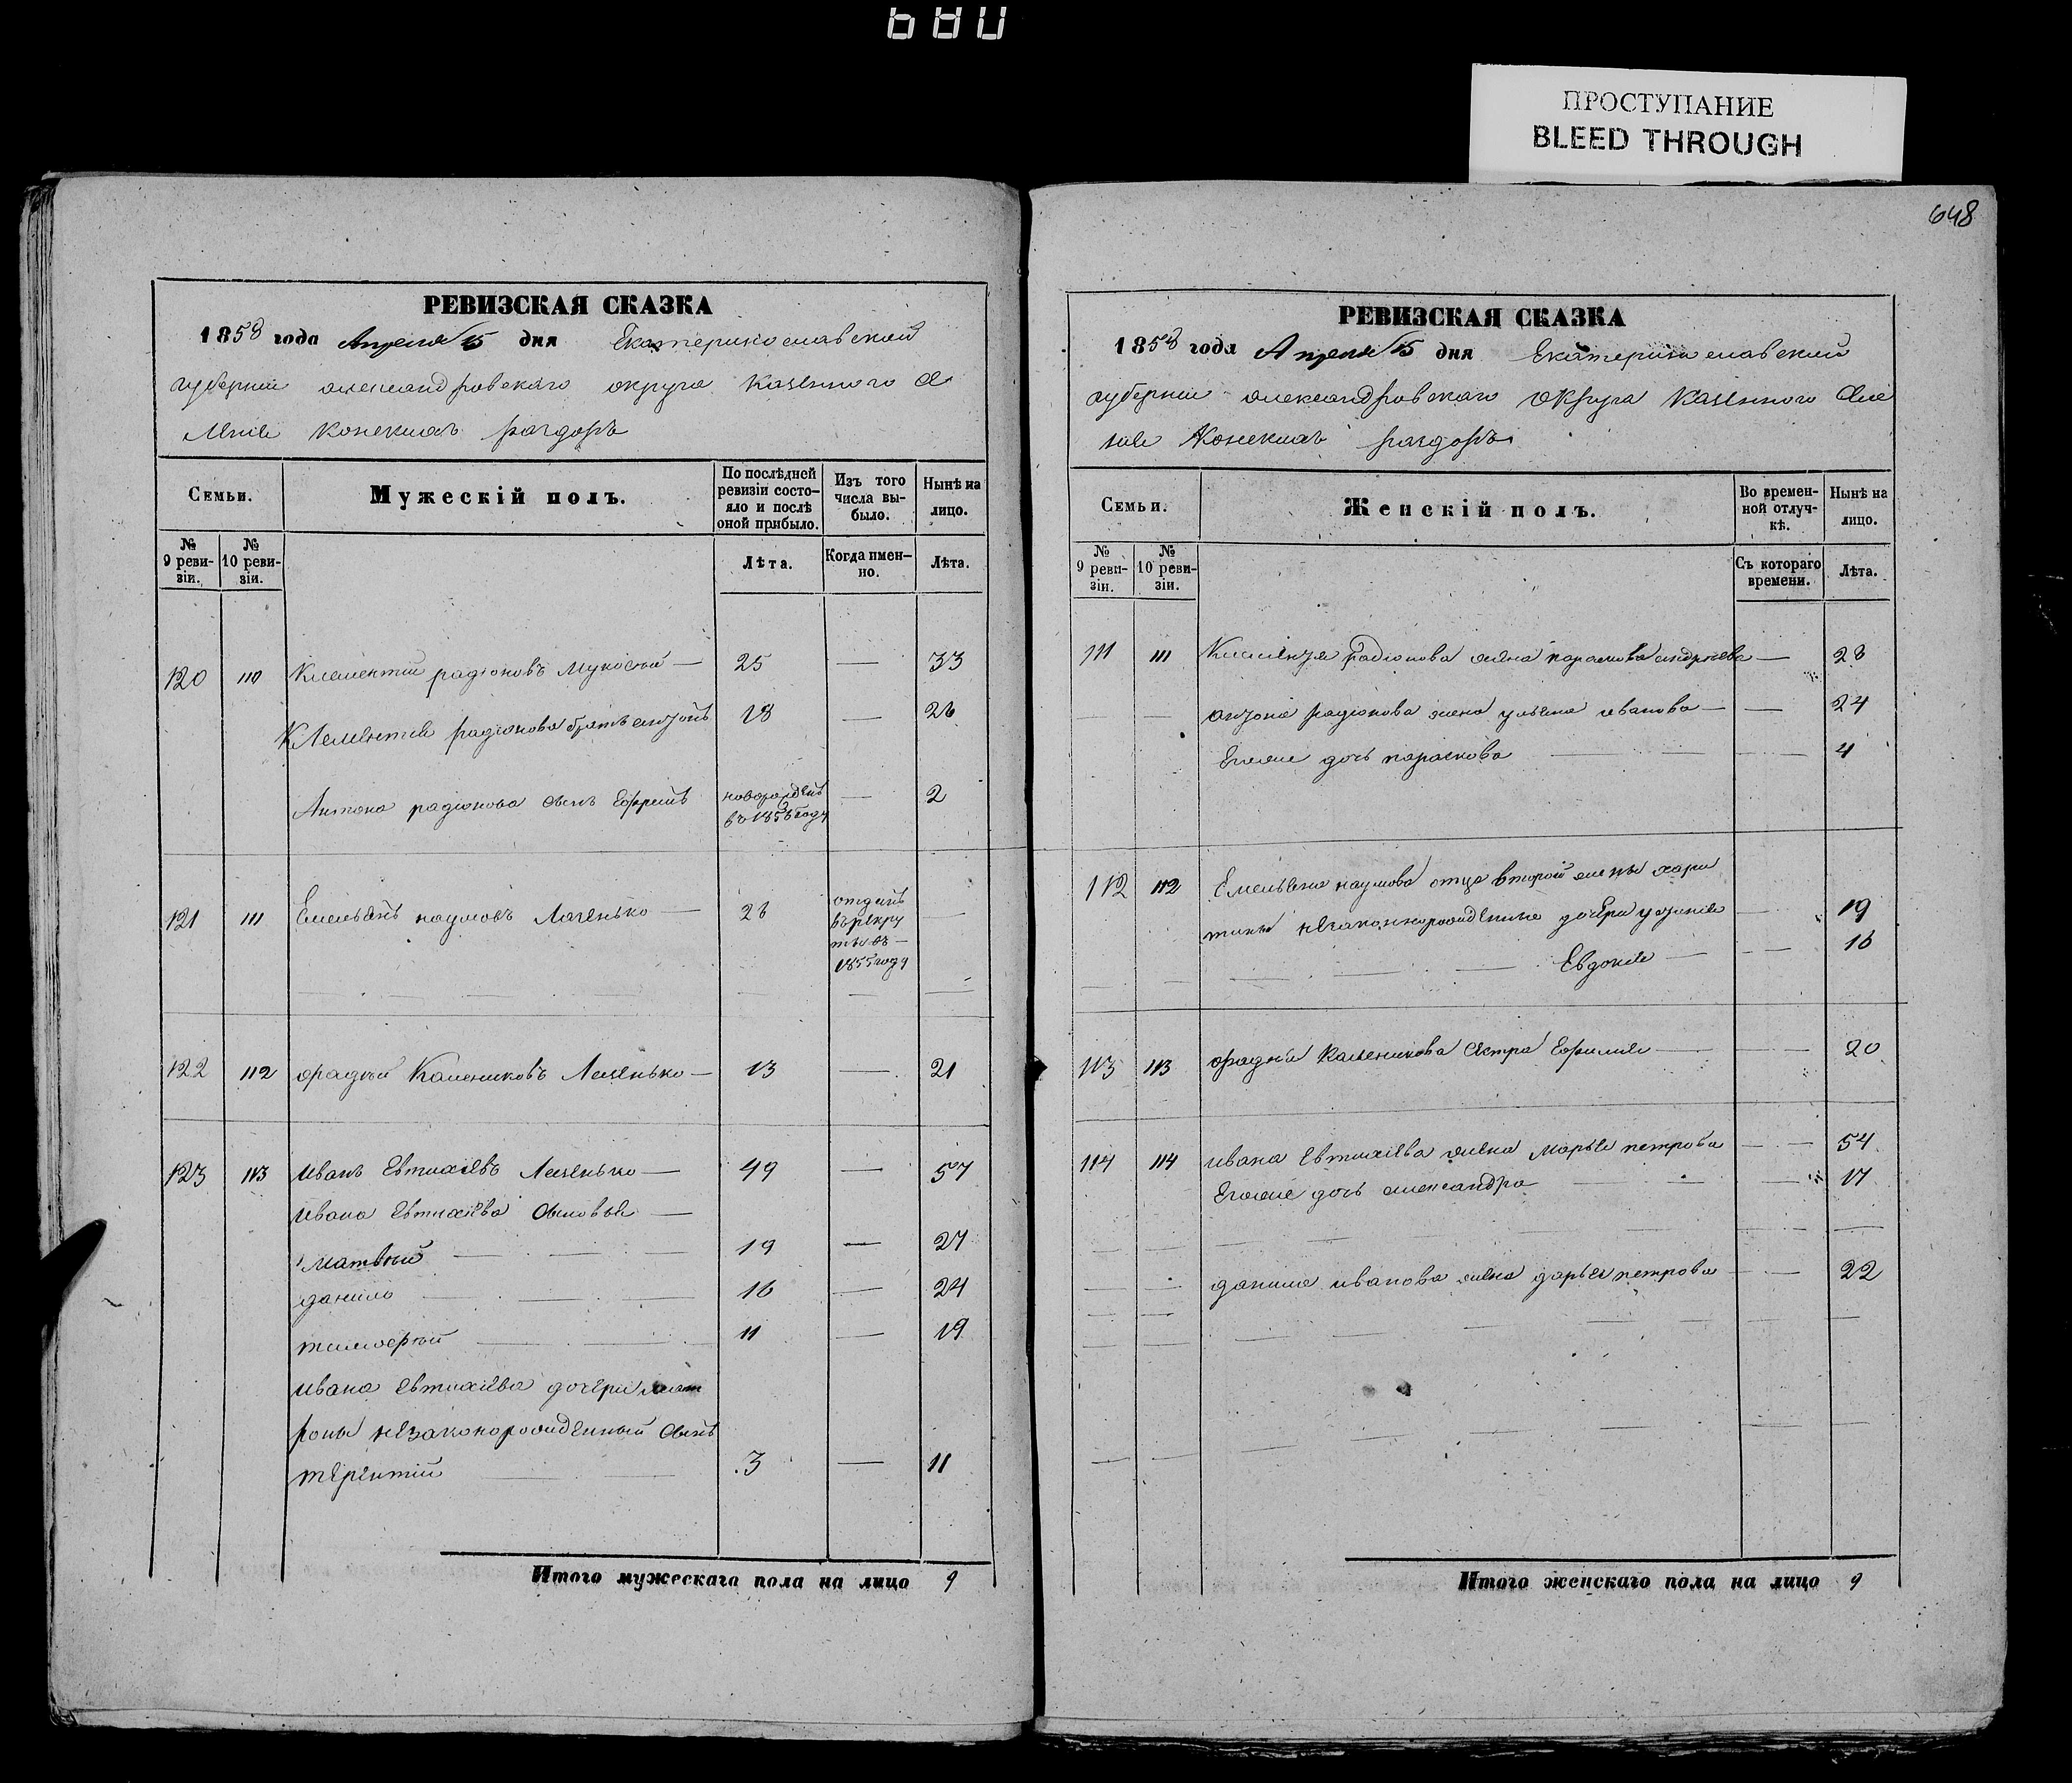 680
ПРОСТУПАНИЕ
BLEED THROUGH
648
РЕВИЗСКАЯ СКАЗКА
1858 года Апреля 15 дня Екатеринославской
губернии александровскаго округа казенного се
ления Конских раздоръ
Семьи. Мужескій полъ. По послѣдней ревизіи состо-яло и послѣ оной прибыло. Изъ того числа вы-было. Нынѣ на лицо.
№ 9 реви-зіи. № 10 реви-зіи. Лѣта. Когда имен-но. Лѣта.
120 110 Клементий радіоновъ — 25 — 33
Клементия радіонова братъ антонъ 18 — 26
Антона радіонова сынъ Ефремъ новорожденъ въ 1856 году — 2
121 111 Емельянъ наумовъ — 26 отданъ въ рекруты въ 1855 году —
122 112 фадѣй Калениковъ — 13 — 21
123 113 иванъ Евтихіевъ — 49 — 57
ивана Евтихіева сыновья —
матвѣй 19 — 27
данило 16 — 24
тимофѣй 11 — 19
ивана Евтихіева дочери мат
роны незаконорожденный сынъ
терентій 3 — 11
Итого мужескаго пола на лицо 9
РЕВИЗСКАЯ СКАЗКА
1858 года Апреля 15 дня Екатеринославской
губернии александровскаго округа казенного селе
ния Конских раздоръ
Семьи. Женскій полъ. Во времен-ной отлуч-кѣ. Нынѣ на лицо.
№ 9 реви-зіи. № 10 реви-зіи. Съ котораго времени. Лѣта.
111 111 Клементия радіонова жена параскова андреева — 28
антона радіонова жена ульяна иванова — — 24
Егоже дочь параскова — 4
112 112 Емельяна наумова отца второй жены хари
тины незаконнорожденные дочери — 19
Евдокия — — 16
113 113 фадѣя каленикова сестра Ефимия — — 20
114 114 ивана Евтихіева жена марья петрова — — 54
Егоже дочь александра — 17
данила иванова жена дарья петрова — — 22
Итого женскаго пола на лицо 9